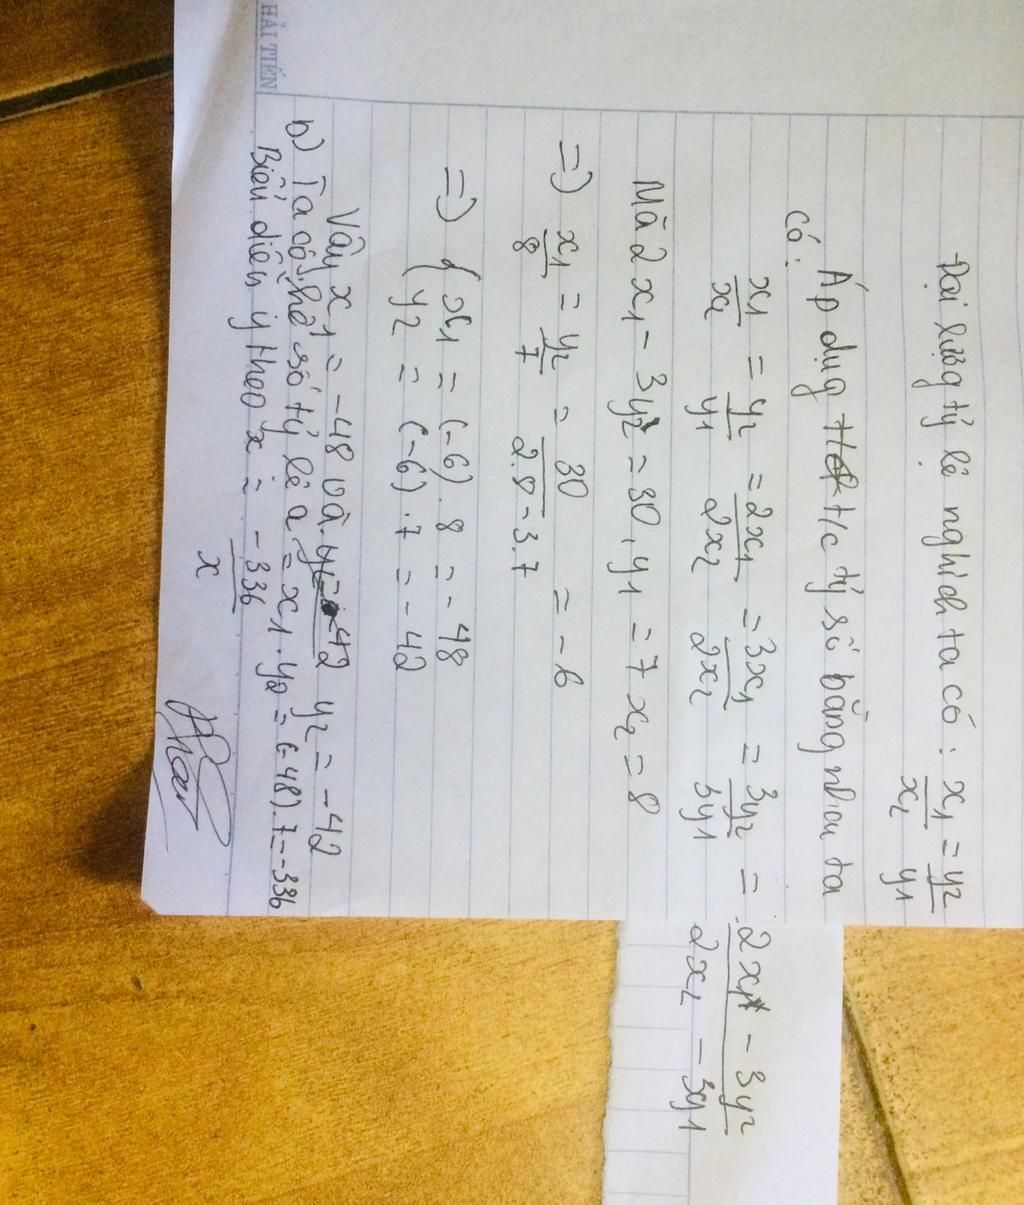 Đại lượng tỷ lệ nghịch ta có : x1/x2 = y2/y1
Áp dụg t/c tỷ số bằng nhau ta
có :
x1/x2 = y2/y1 = 2x1/2x2 = 3x1/2x2 = 3y2/3y1 = 2x1 - 3y2/2x2 - 3y1
Mà 2x1 - 3y2 = 30, y1 = 7 x2 = 8
=) x1/8 = y2/7 = 30/2.8-3.7 = -6
=) { x1 = (-6). 8 = -48
y2 = (-6) . 7 = -42
Vậy x1 = -48 và y2 = -42
b) Ta có hệ số tỷ lệ a = x1 . y2 = (-48).7 = -336
Biểu diễn y theo x = -336/x
HẢI TIẾN